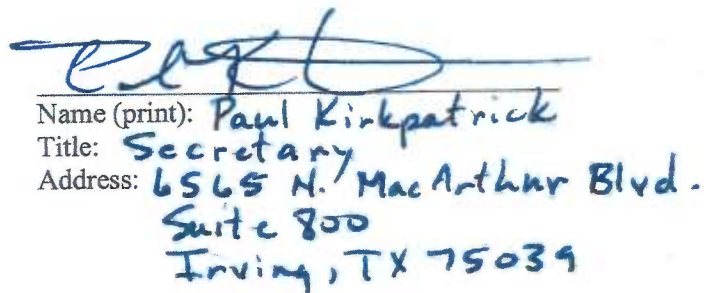 Name (print): Paul Kirkpatrick
Title: Secretary
Address: 6565 N. MacArthur Blvd.
Suite 800
Irving, TX 75039